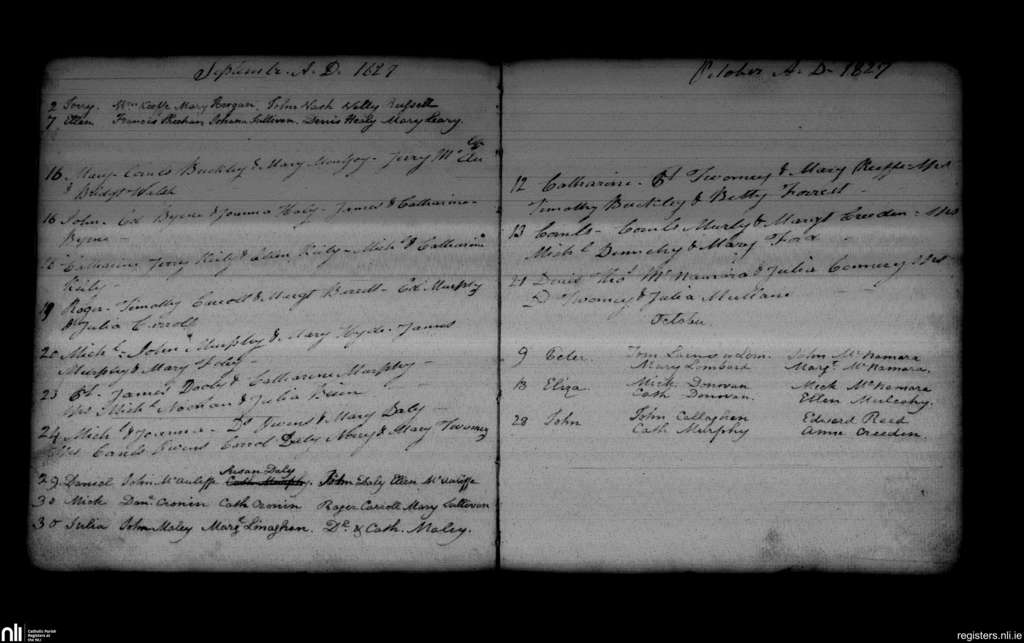 September A. D. 1827
2 Jerry. Wm Keeffe Mary Reegan. John Nash Nelly Russell
7 Ellen Francis Reehan Johana Sullivan. Denis Healy Mary Leary.
16 Mary Corns Buckley & Mary Jerry Mc
& Bridgt Walsh
16 John Ed Byrne & Joanna Haly - James & Catharine
Byrne -
Catharine Jerry Riely & Ellen Riely - Michl & Catharine
Riely -
19 Roger - Timothy Carroll & Margt Barrett - Ed. Murphy
& Julia Carroll
20 Michl - John Murphy & Mary Hyde - James
Murphy & Mary Foley -
23 Pt. James Dooly & Catharine Murphy -
Wss Michl Noohan & Julia Brien
24 Michl & Joanna - Dl Owens & Mary Daly -
Wss Corns Owens Carrol Daly & Mary Twomey
29 Daniel John McAuliffe Susan Daly John Daly Ellen McAuliffe
30 Mick Danl Cronin Cath Cronin Roger Carroll Mary Sullivan
30 Julia John Maley Margt Linaghen. Dl & Cath. Maley.
October A. D. 1827
12 Catharine - Pt Twomey & Mary Keeffe Wss
Timothy Buckley & Betty Forrest -
13 Corns - Corns Hurly & Margt Creedon - Wss
Michl Dennehy & Mary Fox
21 Denis Thos McNamara & Julia Wss
D Twomey & Julia Mullane
October.
9 Peter. Tom John McNamara
Mary Lombard Margt McNamara.
13 Eliza. Mick Donovan Mick McNamara
Cath Donovan. Ellen Mulcahy.
28 John John Callaghen Edward Reed
Cath Murphy Anne Creeden.
nli Catholic Parish
Registers at
the NLI
registers.nli.ie